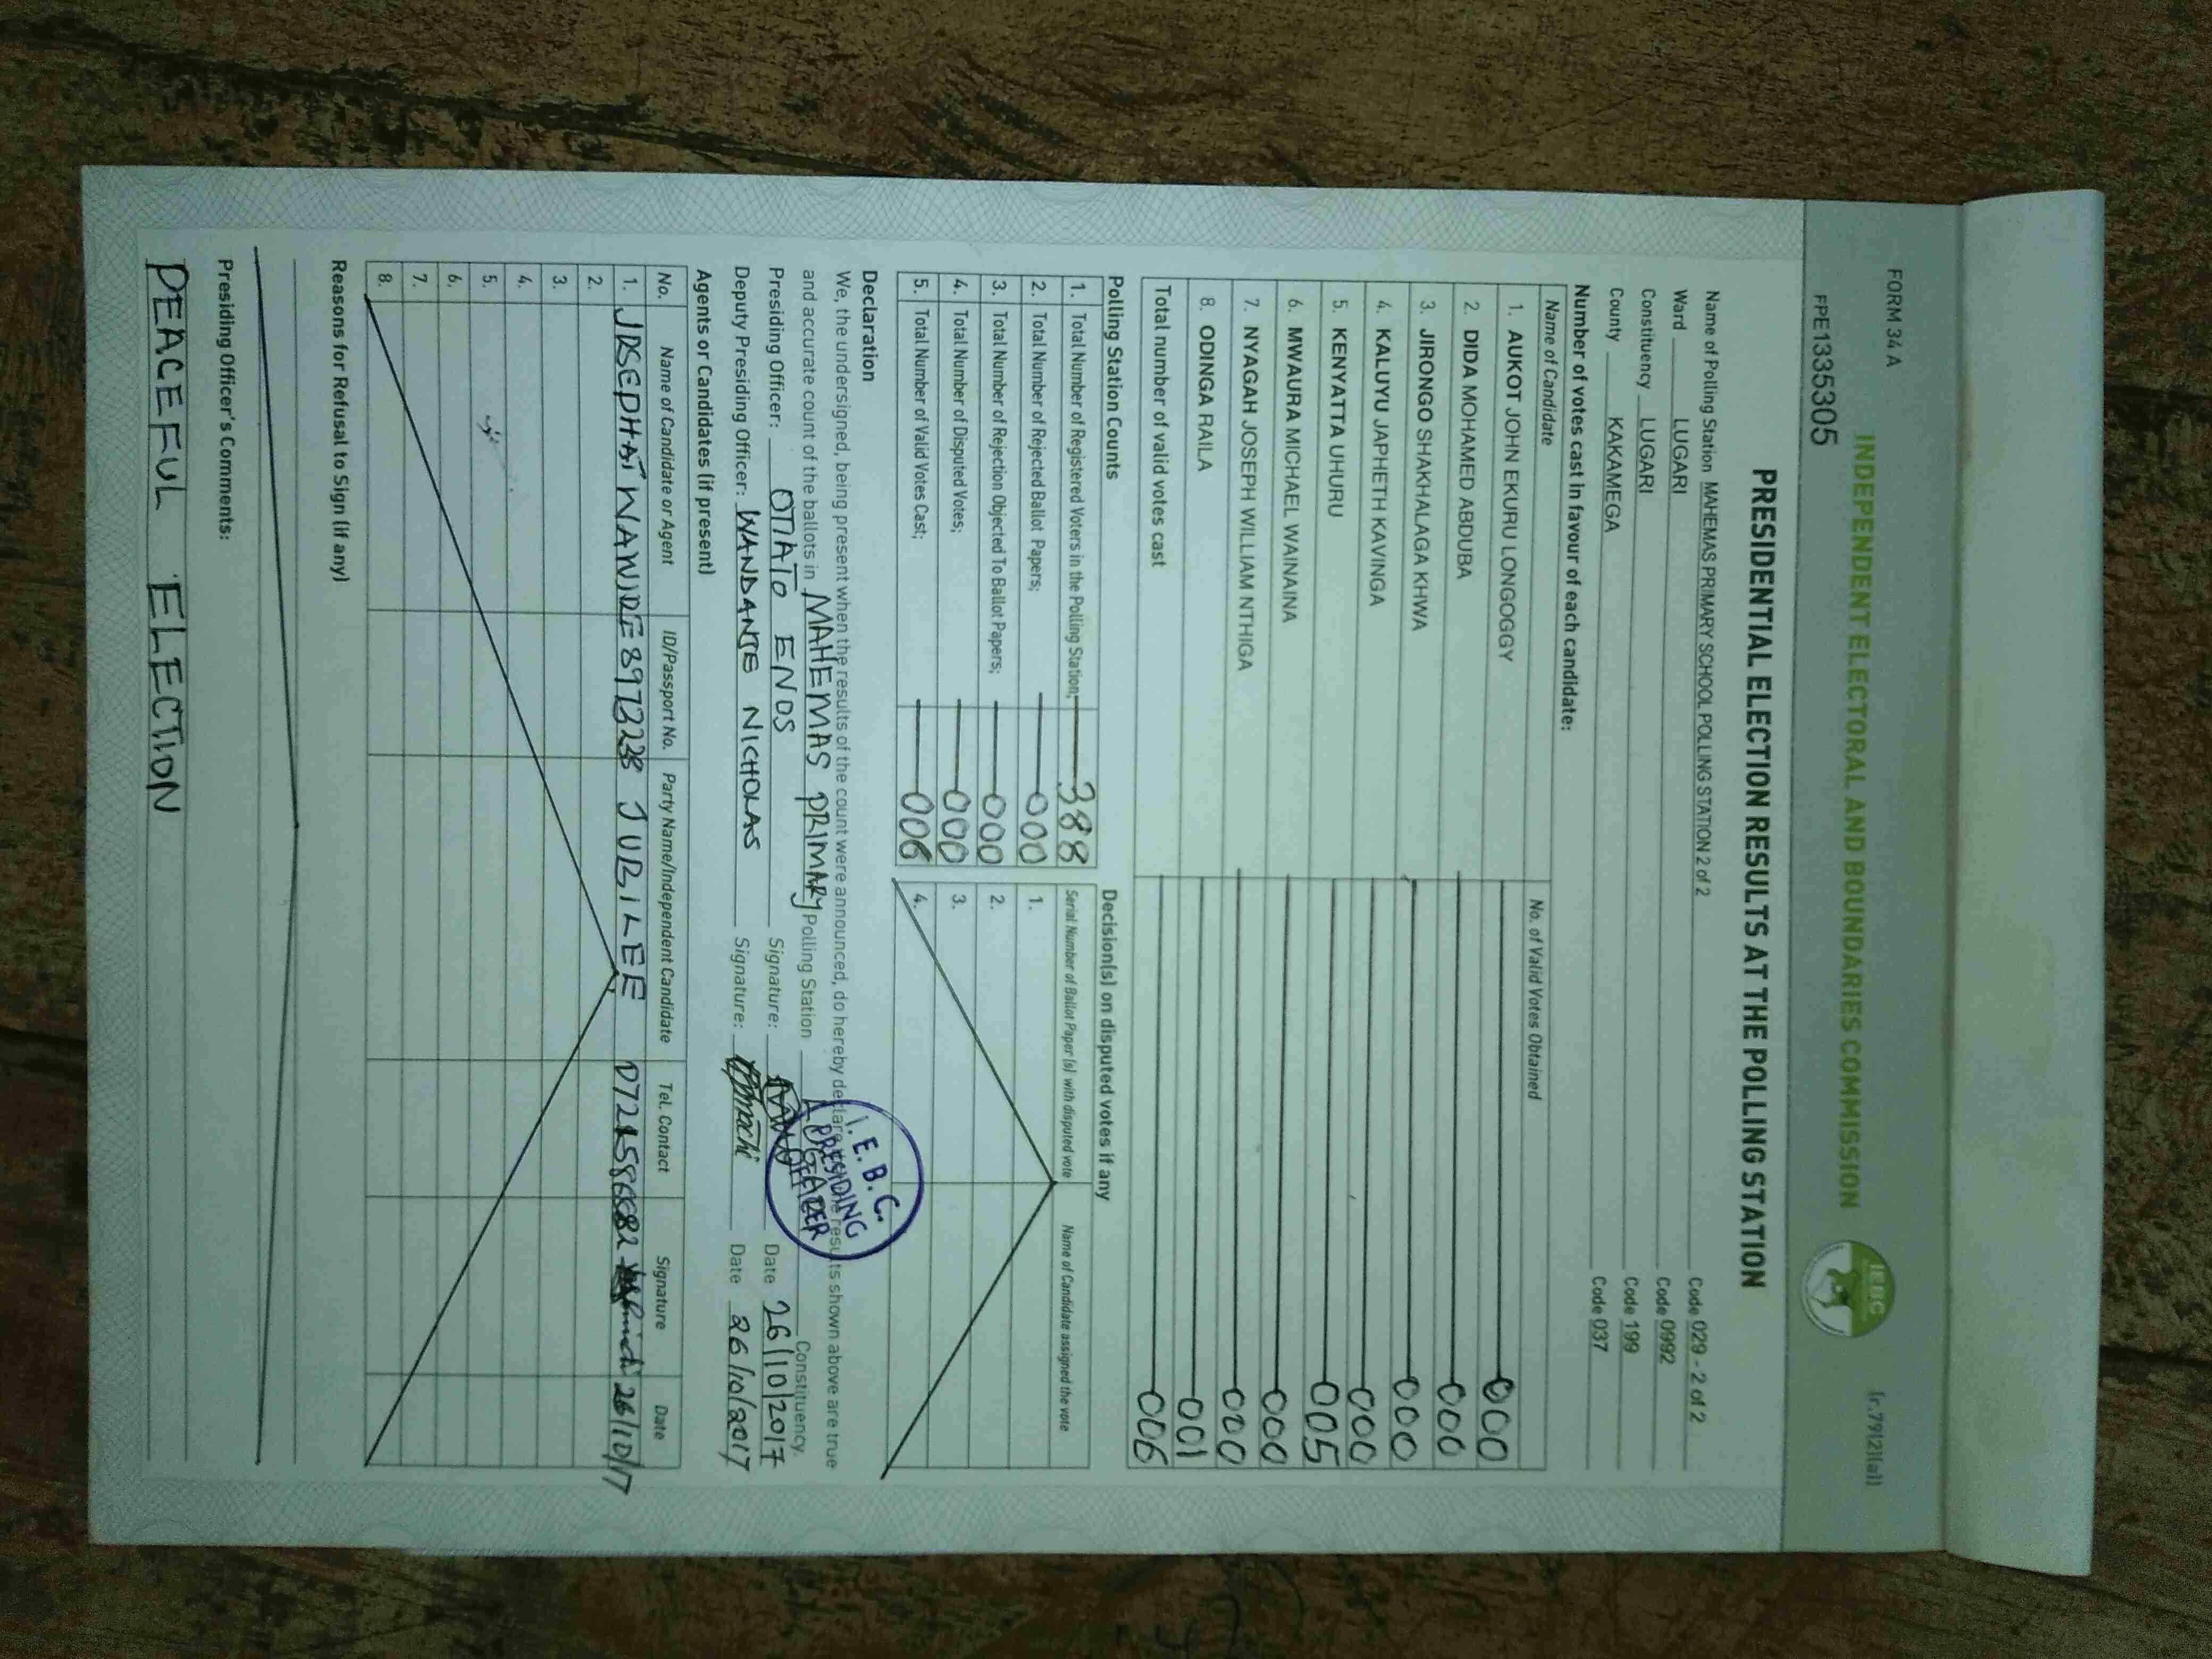 FORM 34 A
(r.79(2)(a))
INDEPENDENT ELECTORAL AND BOUNDARIES COMMISSION
IEBC
FPE1335305
PRESIDENTIAL ELECTION RESULTS AT THE POLLING STATION
Name of Polling Station MAHEMAS PRIMARY SCHOOL POLLING STATION 2 of 2 Code 029 - 2 of 2
Ward LUGARI Code 0992
Constituency LUGARI Code 199
County KAKAMEGA Code 037
Number of votes cast in favour of each candidate:
Name of Candidate No. of Valid Votes Obtained
1. AUKOT JOHN EKURU LONGOGGY 000
2. DIDA MOHAMED ABDUBA 000
3. JIRONGO SHAKHALAGA KHWA 000
4. KALUYU JAPHETH KAVINGA 000
5. KENYATTA UHURU 005
6. MWAURA MICHAEL WAINAINA 000
7. NYAGAH JOSEPH WILLIAM NTHIGA 000
8. ODINGA RAILA 001
Total number of valid votes cast 006
Polling Station Counts
1. Total Number of Registered Voters in the Polling Station; 388
2. Total Number of Rejected Ballot Papers; 000
3. Total Number of Rejection Objected To Ballot Papers; 000
4. Total Number of Disputed Votes; 000
5. Total Number of Valid Votes Cast; 006
Decision(s) on disputed votes if any
Serial Number of Ballot Paper (s) with disputed vote Name of Candidate assigned the vote
1.
2.
3.
4.
Declaration
We, the undersigned, being present when the results of the count were announced, do hereby declare the results shown above are true
and accurate count of the ballots in MAHEMAS PRIMARY Polling Station Constituency.
Presiding Officer: OTIATO ENOS Signature: Date 26/10/2017
Deputy Presiding Officer: WANDANTE NICHOLAS Signature: Date 26/10/2017
I. E. B. C.
PRESIDING
OFFICER
Agents or Candidates (if present)
No. Name of Candidate or Agent ID/Passport No. Party Name/Independent Candidate Tel. Contact Signature Date
1. JOSEPHAT JUBILEE 26/10/17
2.
3.
4.
5.
6.
7.
8.
Reasons for Refusal to Sign (if any)
Presiding Officer's Comments:
PEACEFUL ELECTION